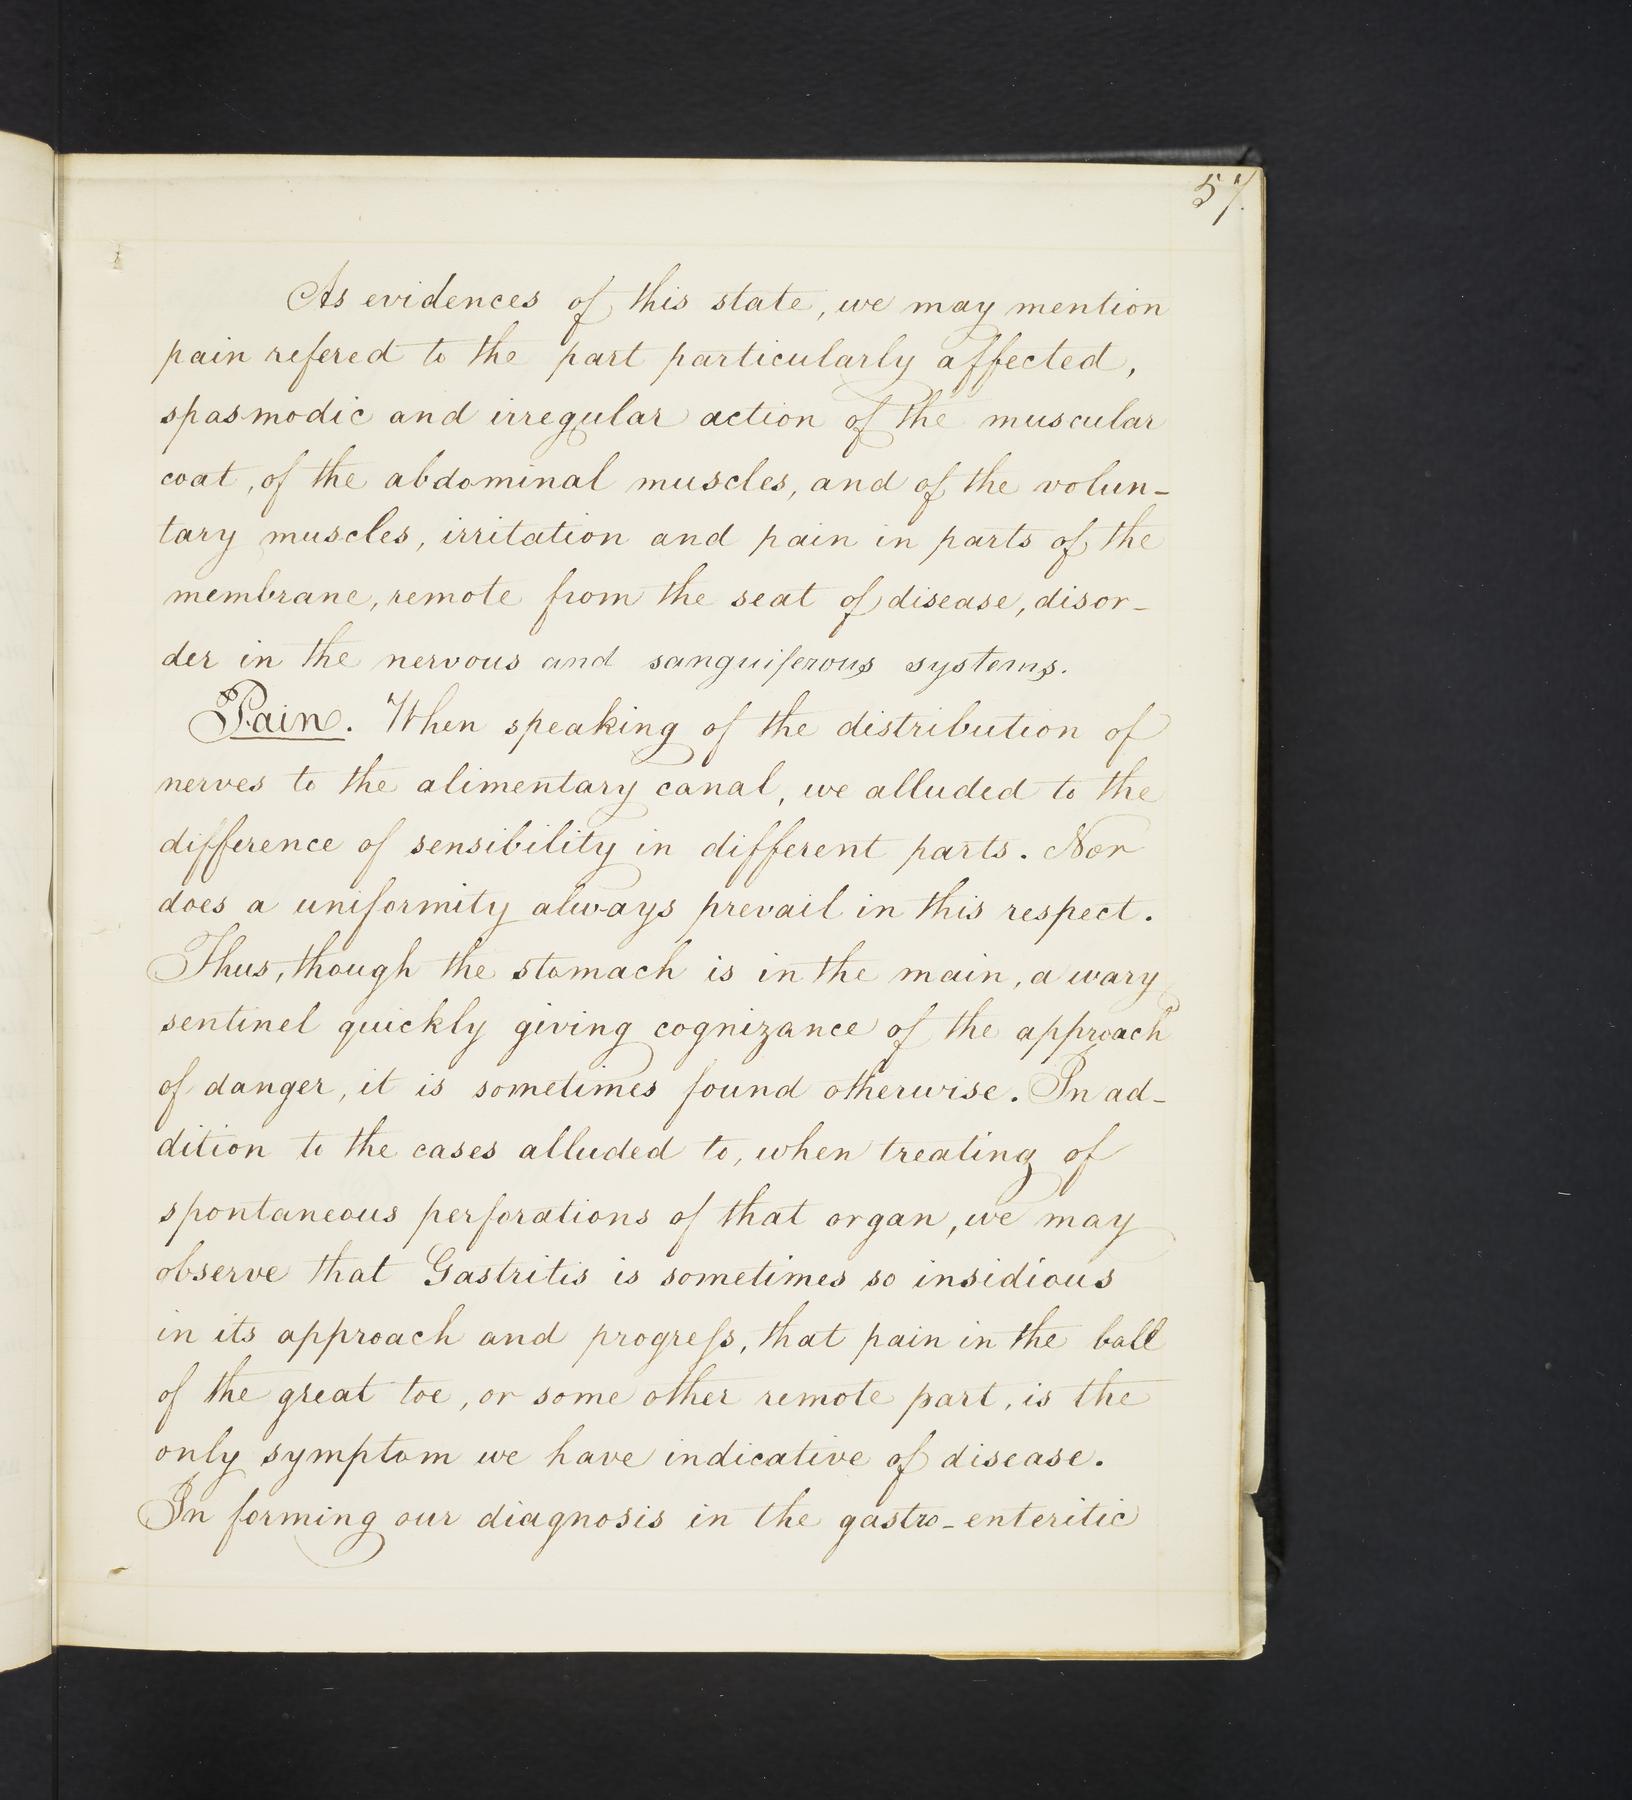 57.
As evidences of this state, we may mention
pain refered to the part particularly affected,
spasmodic and irregular action of the muscular
coat, of the abdominal muscles, and of the volun-
tary muscles, irritation and pain in parts of the
membrane, remote from the seat of disease, disor-
der in the nervous and sanguiferous systems.
Pain. When speaking of the distribution of
nerves to the alimentary canal, we alluded to the
difference of sensibility in different parts. Nor
does a uniformity always prevail in this respect.
Thus, though the stomach is in the main, a wary
sentinel quickly giving cognizance of the approach
of danger, it is sometimes found otherwise. In ad-
dition to the cases alluded to, when treating of
spontaneous perforations of that organ, we may
observe that Gastritis is sometimes so insidious
in its approach and progreſs, that pain in the ball
of the great toe, or some other remote part, is the
only symptom we have indicative of disease.
In forming our diagnosis in the gastro-enteritic